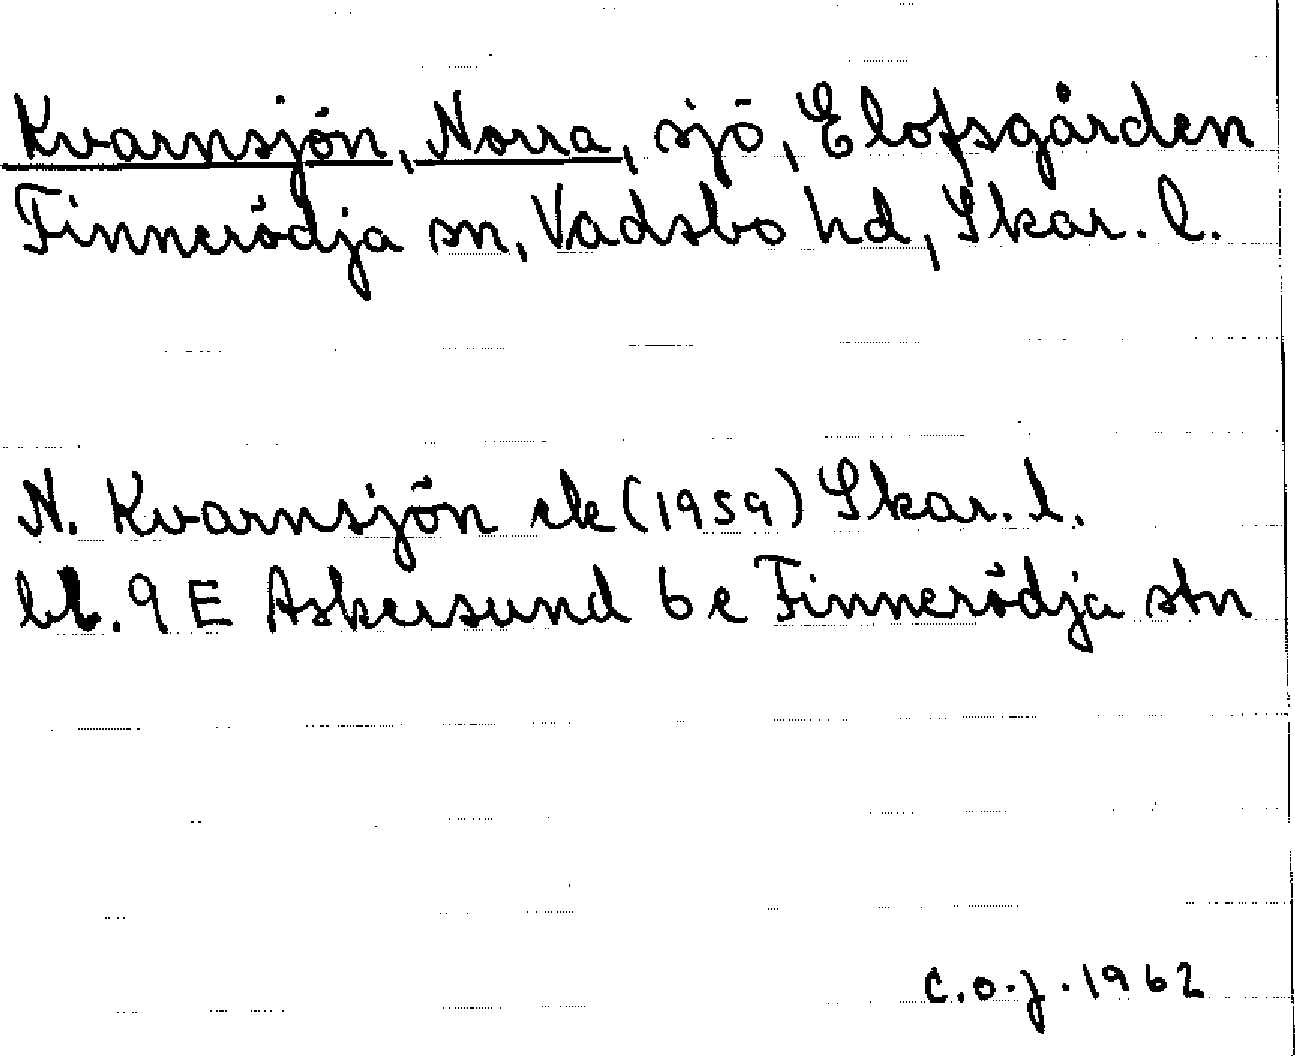 Kvarnsjön, Norra, sjö, Elofsgården
Finnerödja sn, Vadsbo hd, Skar. l.
N. Kvarnsjön ek (1959) Skar. l.
bl. 9 E Askersund 6 e Finnerödja stn
C.O.J. 1962